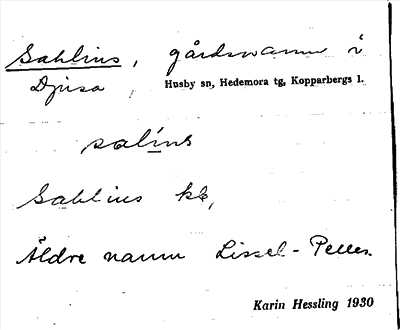 Sahlins, gårdsnamn i
Djusa Husby sn, Hedemora tg, Kopparbergs l.
salíns
Sahlins
Äldre namn Lissel-Pelles.
Karin Hessling 1930